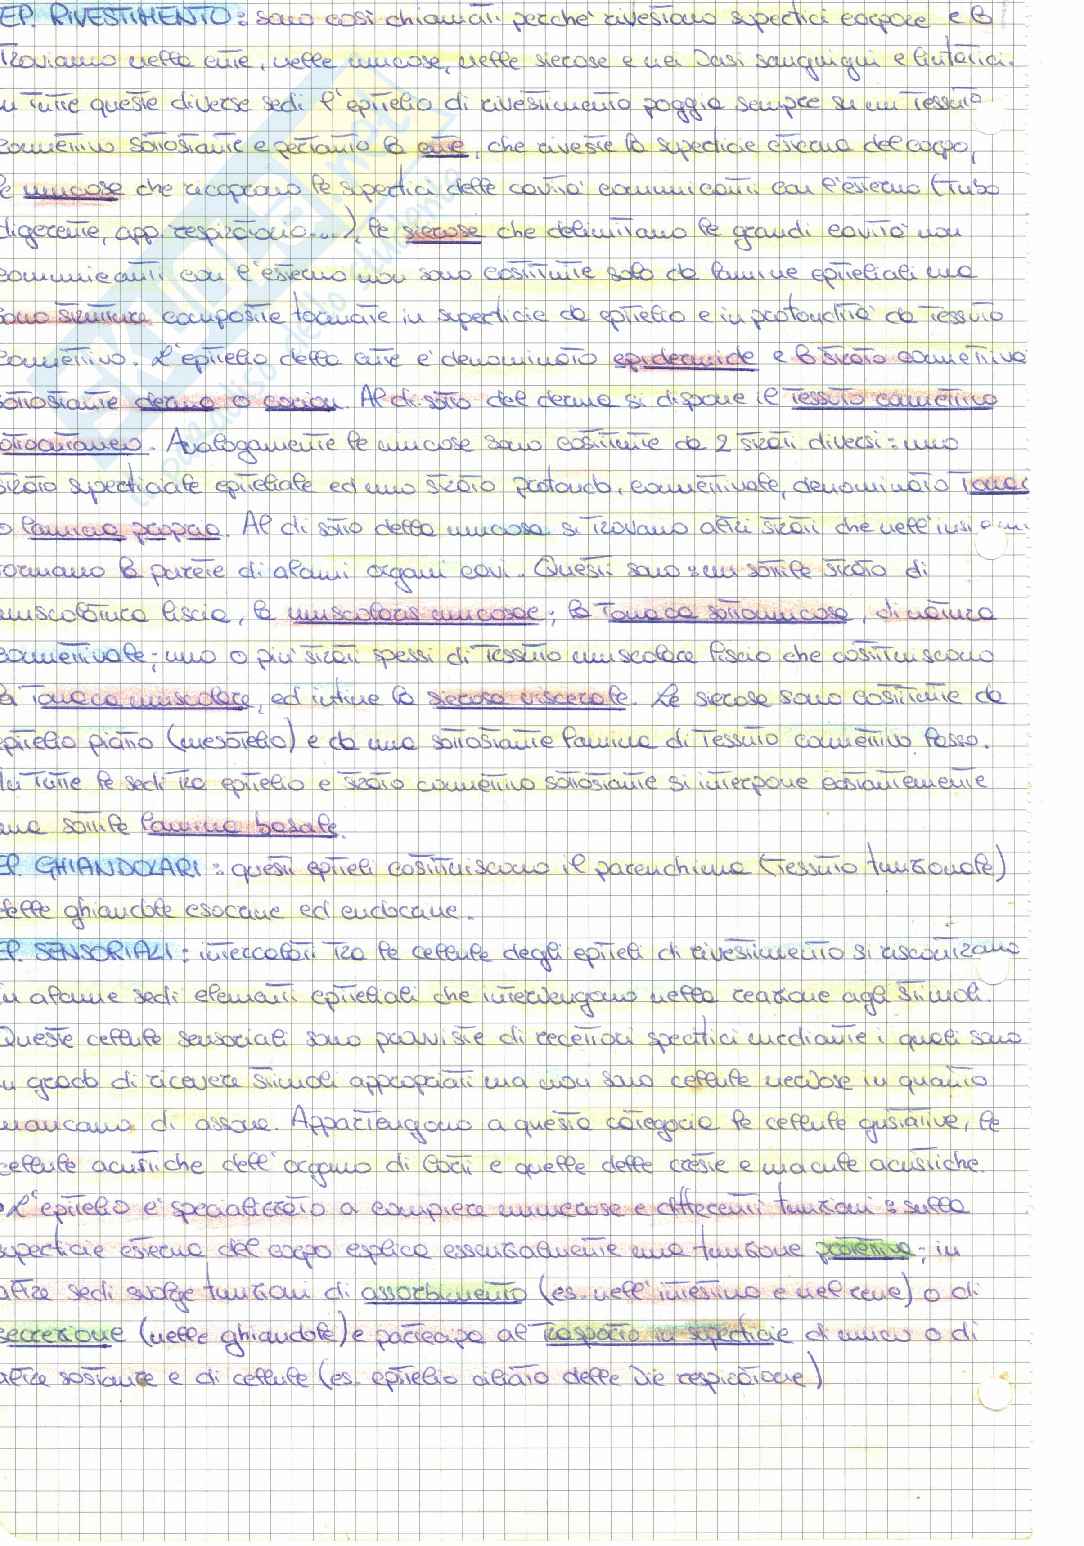 EP. RIVESTIMENTO: sono così chiamati perchè rivestono superfici corporee e li
troviamo nella cute, nelle mucose, nelle sierose e nei vasi sanguigni e linfatici.
In tutte queste diverse sedi l'epitelio di rivestimento poggia sempre su un tessuto
connettivo sottostante e pertanto la cute, che riveste la superficie esterna del corpo,
le mucose che ricoprono le superfici delle cavità comunicanti con l'esterno (tubo
digerente, app. respiratorio...), le sierose che delimitano le grandi cavità non
comunicanti con l'esterno non sono costituite solo da lamine epiteliali ma
sono strutture composite formate in superficie da epitelio e in profondità da tessuto
connettivo. L'epitelio della cute e' denominato epidermide e lo strato connettivo
sottostante derma o corion. Al di sotto del derma si dispone il tessuto connettivo
sottocutaneo. Analogamente le mucose sono costituite da 2 strati diversi: uno
strato superficiale epiteliale ed uno strato profondo, connettivale, denominato tonaca
o lamina propria. Al di sotto della mucosa si trovano altri strati che nell'insieme
formano la parete di alcuni organi cavi. Questi sono: un sottile strato di
muscolatura liscia, la muscolaris mucosae; la tonaca sottomucosa, di natura
connettivale; uno o più strati spessi di tessuto muscolare liscio che costituiscono
la tonaca muscolare, ed infine la sierosa viscerale. Le sierose sono costituite da
epitelio piatto (mesotelio) e da una sottostante lamina di tessuto connettivo lasso.
In tutte le sedi tra epitelio e strato connettivo sottostante si interpone costantemente
una sottile lamina basale.
EP. GHIANDOLARI: questi epiteli costituiscono il parenchima (tessuto funzionale)
delle ghiandole esocrine ed endocrine.
EP. SENSORIALI: intercalati tra le cellule degli epiteli di rivestimento si riscontrano
in alcune sedi elementi epiteliali che intervengono nella reazione agli stimoli.
Queste cellule sensoriali sono provviste di recettori specifici mediante i quali sono
in grado di ricevere stimoli appropriati ma non sono cellule nervose in quanto
mancano di assone. Appartengono a questa categoria le cellule gustative, le
cellule acustiche dell'organo di Corti e quelle delle creste e macule acustiche.
• L'epitelio e' specializzato a compiere numerose e differenti funzioni: sulla
superficie esterna del corpo esplica essenzialmente una funzione protettiva; in
altre sedi svolge funzioni di assorbimento (es. nell'intestino e nel rene) o di
secrezione (nelle ghiandole) e partecipa al trasporto in superficie di muco o di
altre sostanze e di cellule (es. epitelio ciliato delle vie respiratorie)